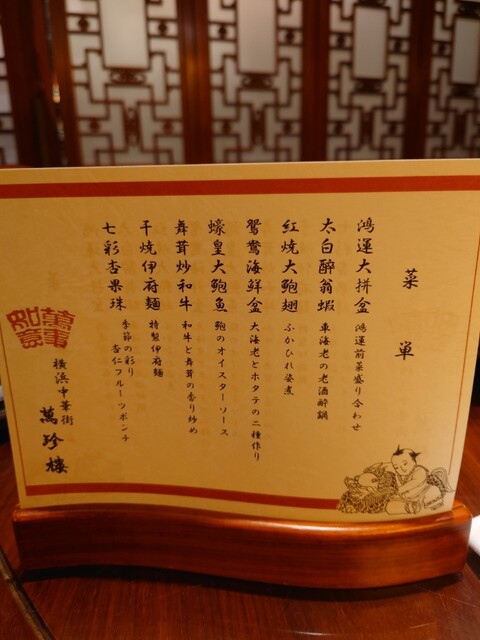 菜単
鴻運大拼盆 鴻運前菜盛り合わせ
太白醉翁蝦 車海老の老酒酔鍋
紅焼大鮑翅 ふかひれ姿煮
鴛鴦海鮮盆 大海老とホタテの二種作り
蠔皇大鮑魚 鮑のオイスターソース
舞茸炒和牛 和牛と舞茸の香り炒め
干焼伊府麺 特製伊府麺
七彩杏果珠 季節の彩り
杏仁フルーツポンチ
萬事如意
横浜中華街
萬珍樓